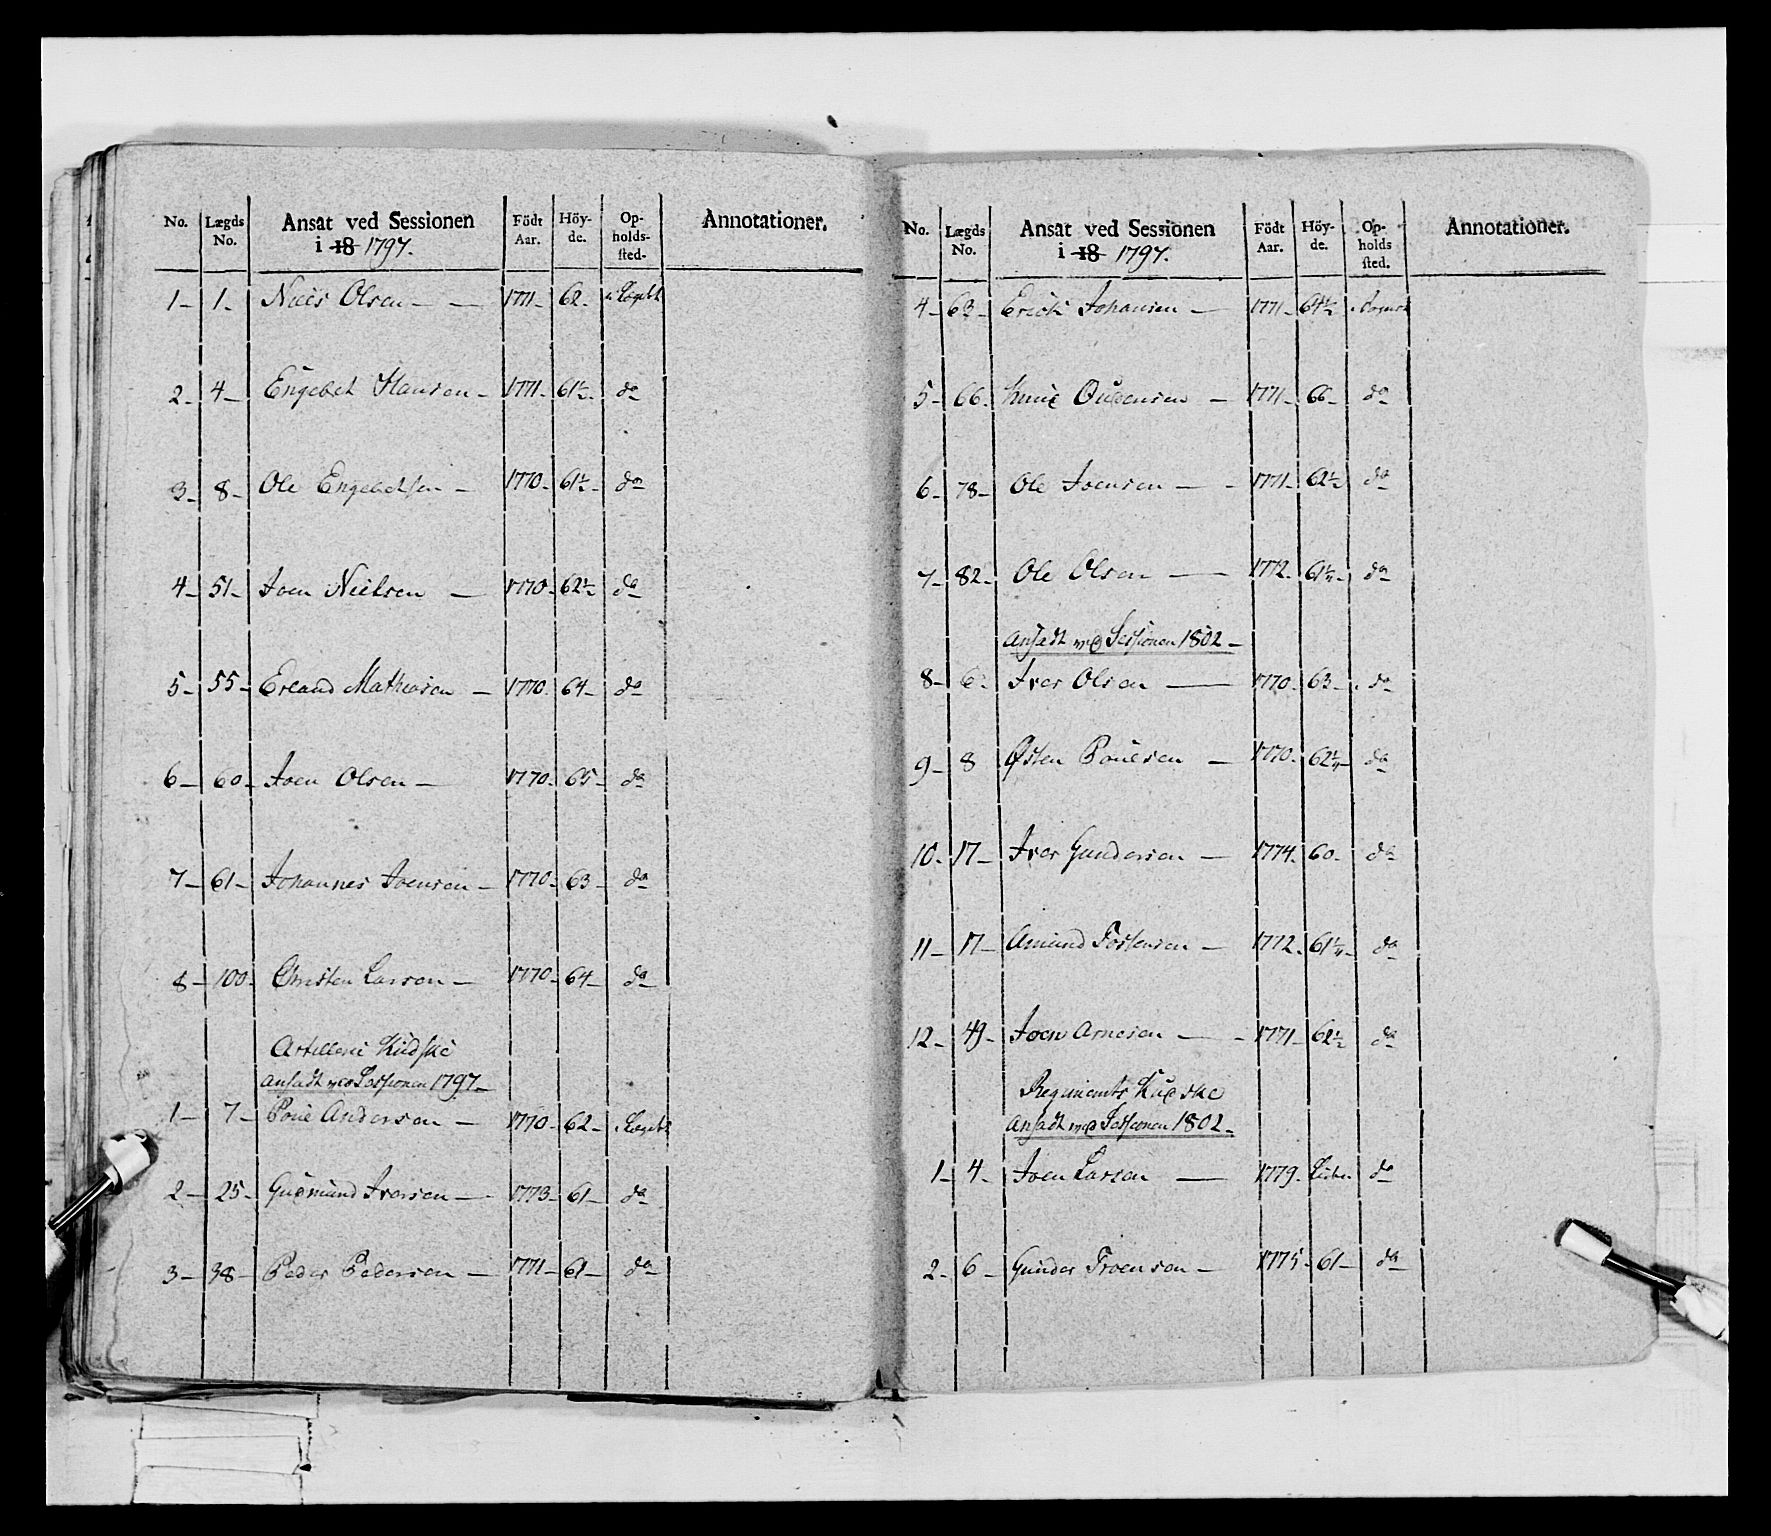 No. Lægds No. Ansat ved Sessionen i 18 1797. Födt Aar. Höy-de. Op-holds-sted. Annotationer.
1 - 1 - Niels Olsen - 1771 - 62 -
2 - 4 - Engebet Hansen - 1771 - 61½ - do
3 - 8 - Ole Engebetsen - 1770 - 61½ - do
4 - 51 - Joen Nielsen - 1770 - 62½ do
5 - 55 - Erland Mathiesen - 1770 - 64 - do
6 - 60 - Joen Olsen - 1770 - 65 - do
7 - 61 - Johannes Joensen - 1770 - 63 - do
8 - 100 - Christen Larsen - 1770 - 64 - do
Artillerie Kudske
Ansadt ved Sessionen 1797 -
1 - 7 - Poul Andersen - 1770 - 62 -
2 - 25 - Gudmund Iversen - 1773 - 61 - do
3 - 38 - Peder Pedersen - 1771 - 61 - do
No. Lægds No. Ansat ved Sessionen i 18 1797. Födt Aar. Höy-de. Op-holds sted. Annotationer.
4 - 63 - Erich Johansen - 1771 - 64½
5 - 66 - Knud Oudensen - 1771 - 66 - do
6 - 78 - Ole Joensen - 1771 - 62½ do
7 - 82 - Ole Olsen - 1772 - 61½ - do
Ansadt ved Sessionen 1802 -
8 - 6 - Iver Olsen - 1770 - 63 - do
9 - 8 Østen Poulsen - 1770 - 62½ - do
10 - 17 - Iver Gundersen - 1774 - 60 - do
11 - 17 - Amund Torstensen - 1772 - 61½ - do
12 - 49 - Joen Arnesen - 1771 - 62½ do
Regiments Kudske
Ansadt ved Sessionen 1802 -
1 - 4 - Joen Larsen - 1779 - do
2 - 6 - Gunder Troensen - 1775 - 61 - do